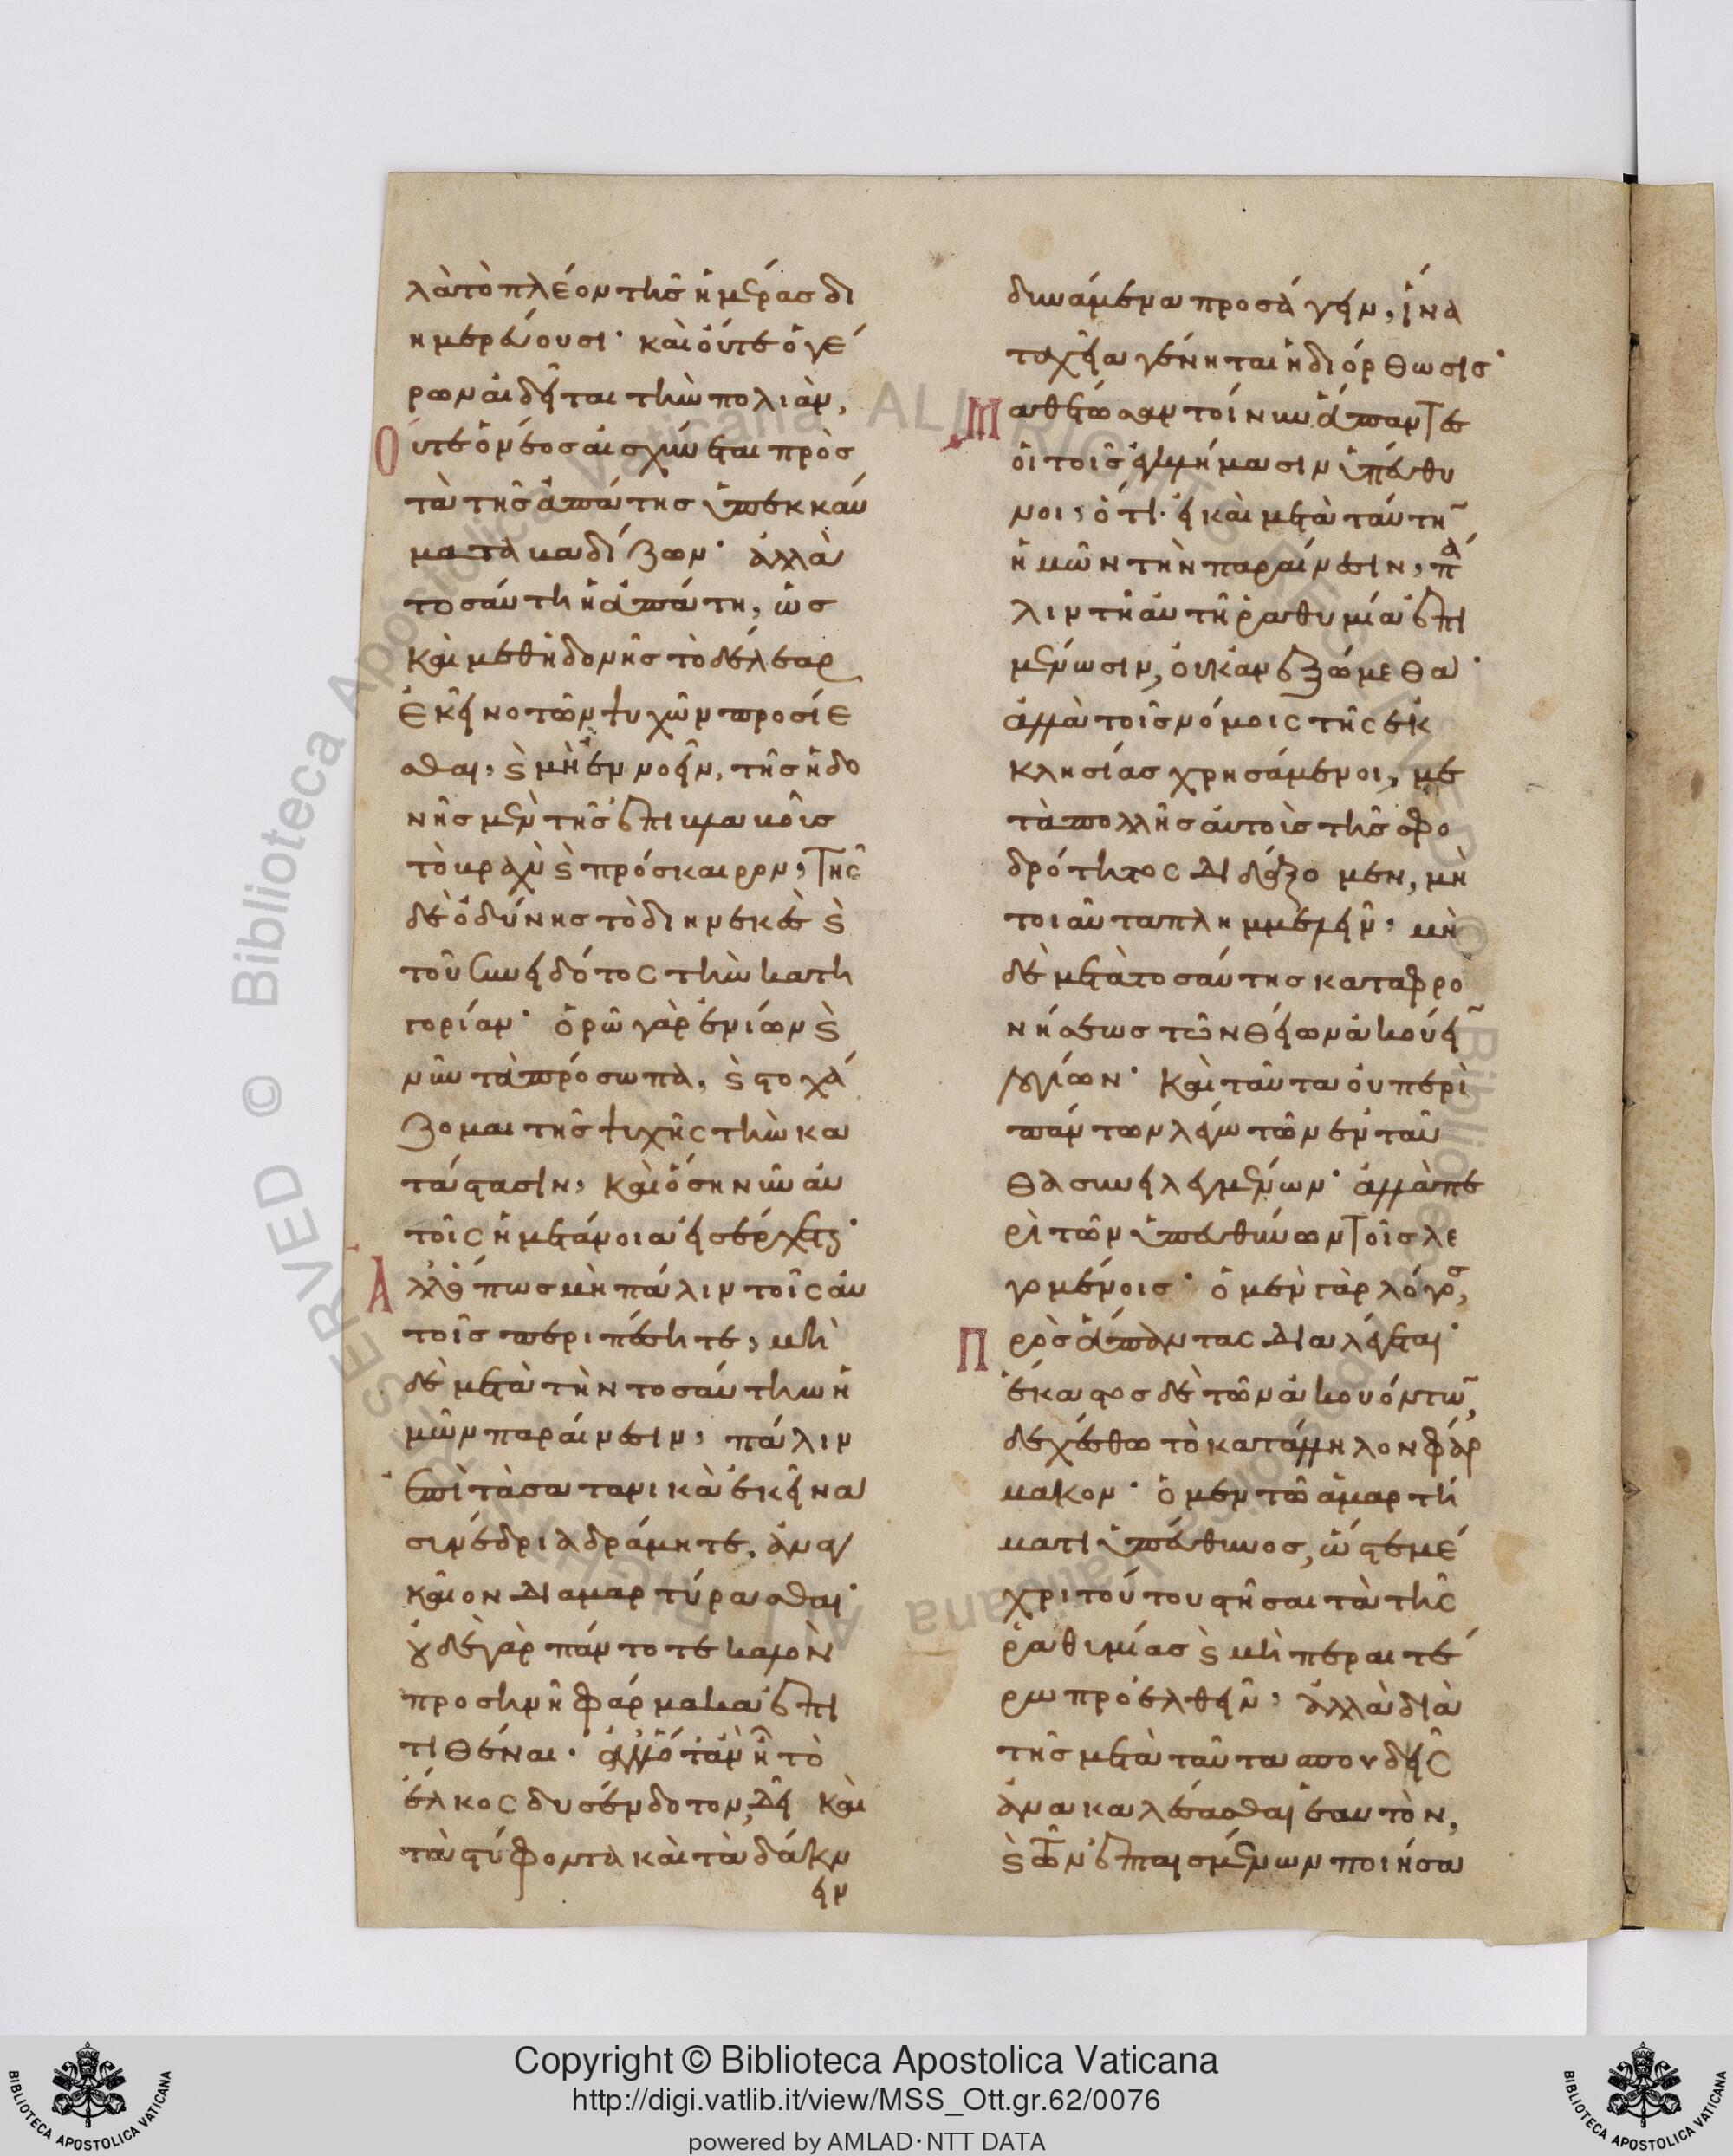 λὰ τὸ πλέον τῆς ἡμέρας δι
ημερεύουσι· καὶ οὔτε ὁ γέ
ρων αἰδεῖται τὴν πολιὰν,
Οὔτε ὁ νέος αἰσχύνεται πρὸς
τὰ τῆς ἀπάτης ὑπεκκαύ
ματα βαδίζων· ἀλλὰ
τοσαύτη ἡ ἀπάτη, ὡς
καὶ μεθ ἡδονῆς τὸ δέλεαρ
ἐκεῖνο τῶν ψυχῶν προσίε
σθαι, καὶ μὴ ἐννοεῖν, τῆς ἡδο
νῆς μὲν τῆς ἐπιβλαβοῦς
τὸ βραχὺ καὶ πρόσκαιρον, τῆς
δὲ ὀδύνης τὸ διηνεκὲς καὶ
τοῦ συνειδότος τὴν κατη
γορίαν· ὁρῶ γὰρ ἐνίων καὶ
νῦν τὰ πρόσωπα, καὶ στοχά
ζομαι τῆς ψυχῆς τὴν κα
τάστασιν, καὶ ὅση νῦν αὐ
τοῖς ἡ μετάνοια εἰσέρχεται·
Ἀλλ ὅπως μὴ πάλιν τοῖς αὐ
τοῖς περιπέσητε, μη
δὲ μετὰ τὴν τοσαύτην ἡ
μῶν παραίνεσιν, πάλιν
ἐπὶ τὰ σατανικὰ ἐκεῖνα
συνέδρια δράμητε, ἀναγ
καῖον διαμαρτύρασθαι·
οὐδὲ γὰρ πάντοτε καλὸν
προσηνῆ φάρμακα ἐπι
τιθέναι· ἀλλ ὅταν ἦ τὸ
ἕλκος δυσένδοτον, δεῖ καὶ
τὰ στύφοντα καὶ τὰ δάκν
ειν
δυνάμενα προσάγειν, ἵνα
ταχεῖα γένηται ἡ διόρθωσις·
Μαθέτωσαν τοίνυν ἅπαντες
οἱ τοῖς ἐγκλήμασιν ὑπεύθυ
νοι, ὅτι εἰ καὶ μετὰ ταύτην
ἡμῶν τὴν παραίνεσιν, πά
λιν τῆ αὐτῆ ῥαθυμία ἐπι
μένωσιν, οὐκ ἀνεξώμεθα·
ἀλλὰ τοῖς νόμοις τῆς ἐκ
κλησίας χρησάμενοι, με
τὰ πολλῆς αὐτοὺς τῆς σφο
δρότητος διδάξομεν, μὴ
τοιαῦτα πλημμελεῖν, μη
δὲ μετὰ τοσαύτης καταφρο
νήσεως τῶν θείων ἀκούειν
λογίων· καὶ ταῦτα οὐ περὶ
πάντων λέγω τῶν ἐνταῦ
θα συνειλεγμένων· ἀλλὰ πε
ρὶ τῶν ὑπευθύνων τοῖς λε
γομένοις· ὁ μὲν γὰρ λόγος,
Πρὸς ἅπαντας διαλέγεται·
ἕκαστος δὲ τῶν ἀκουόντων,
δεχέσθω τὸ κατάλληλον φάρ
μακον· ὁ μὲν τῶ ἁμαρτή
ματι ὑπεύθυνος, ὥστε μέ
χρι τούτου στῆσαι τὰ τῆς
ῥαθυμίας καὶ μὴ περαιτέ
ρω προελθεῖν, ἀλλὰ διὰ
τῆς μετὰ ταῦτα σπουδῆς
ἀνακαλέσασθαι ἑαυτὸν,
καὶ τῶν ἐπταισμένων ποιήσα
Copyright © Biblioteca Apostolica Vaticana
http://digi.vatlib.it/view/MSS_Ott.gr.62/0076
powered by AMLAD·NTT DATA
BIBLIOTECA APOSTOLICA VATICANA
BIBLIOTECA APOSTOLICA VATICANA